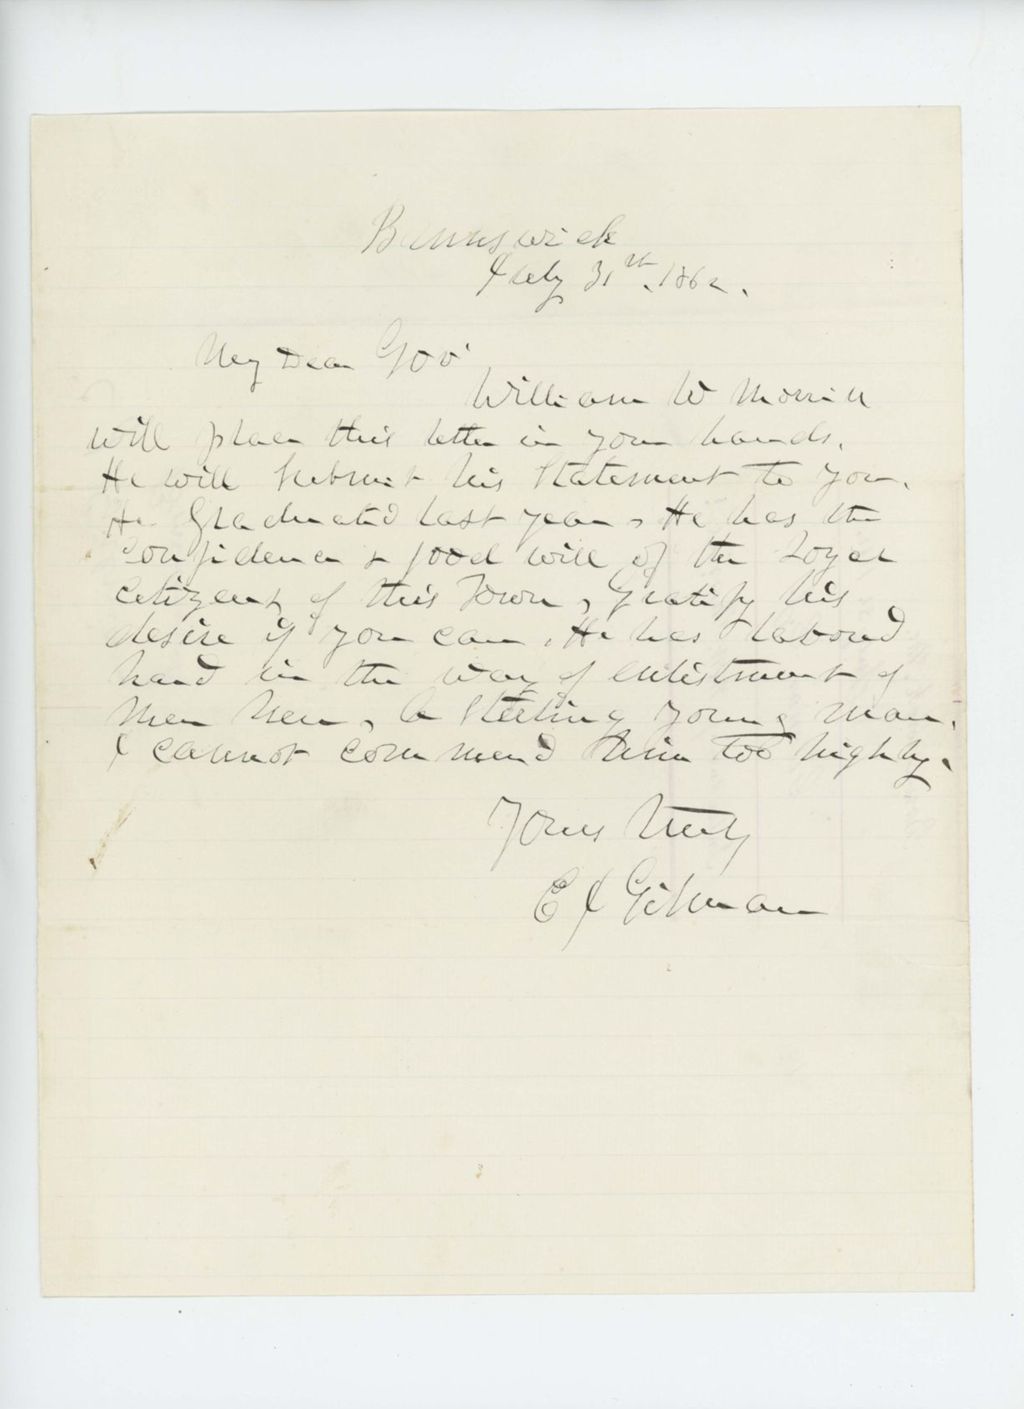 Brunswick
July 31st, 1862.
My Dear Gov'
William W Morrill
will place this letter in your hands.
He will submit his statement to you.
He Graduated last year, He has the
Confidence & good will of the Loyal
Citizens of this Town, Gratify his
desire if you can, He has labored
hard in the way of enlistment of
men here, A sterling young man.
I cannot commend him too highly.
Yours Truly
E J Gilman